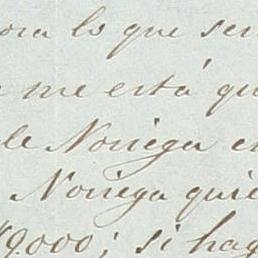 ora lo que ser
me está qu
de Noriega en
Noriega quie
$9.000; si hag